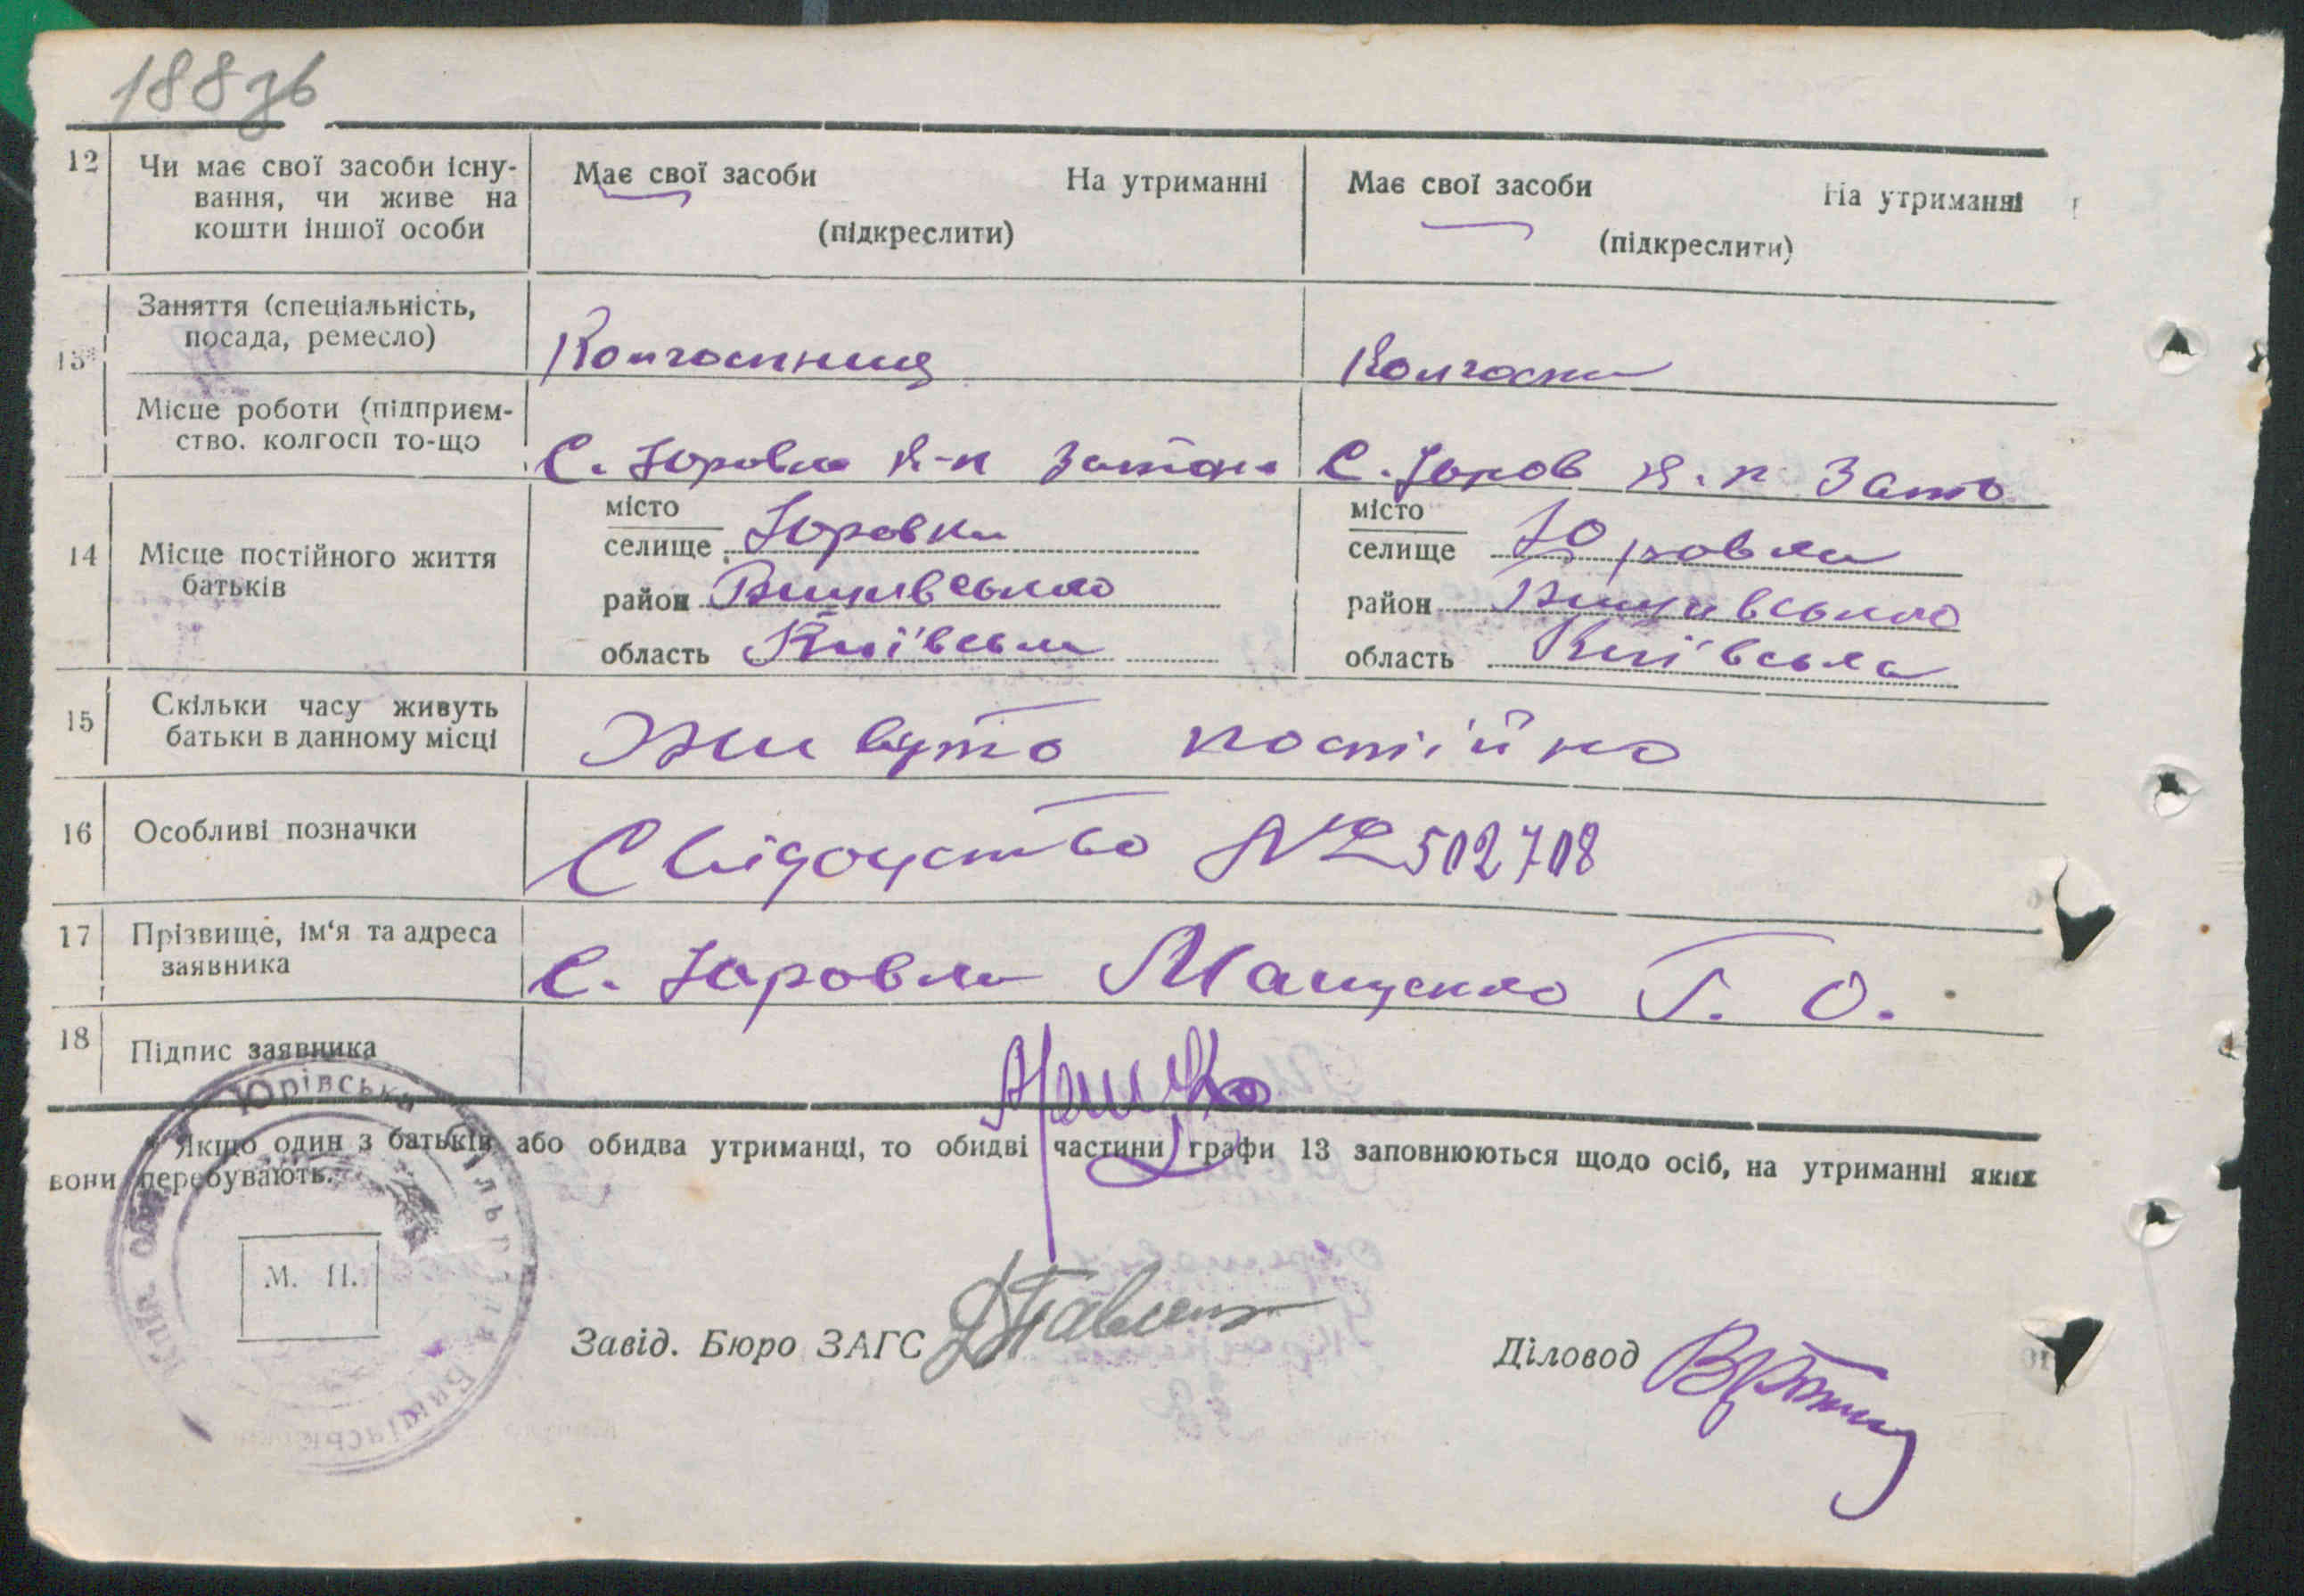 188 зв
12 Чи має свої засоби існу-
вання, чи живе на
кошти іншої особи
Має свої засоби На утриманні
(підкреслити)
Має свої засоби На утриманні
(підкреслити)
13*
Заняття (спеціальність,
посада, ремесло)
Колгоспниця
Колгоспн
Місце роботи (підприєм-
ство. колгосп то-що
С. Юровка к-п
С. Юров к.п
14 Місце постійного життя
батьків
місто
селище Юровка
район
область Київська
місто
селище Юровка
район
область Київська
15 Скільки часу живуть
батьки в данному місці
Живуть постійно
16 Особливі позначки
Свідоцтво № 502708
17 Прізвище, ім‘я та адреса
заявника
С. Юровка Мащенко Г. О.
18 Підпис заявника
* Якщо один з батьків або обидва утриманці, то обидві частини графи 13 заповнюються щодо осіб, на утриманні яких
вони перебувають.
Юрівська
М. П.
Завід. Бюро ЗАГС
Діловод